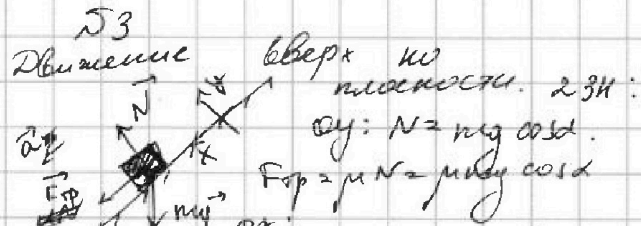 №3
Движение вверх по
плоскости. 2ЗН:
Oy: N = mg cosα.
Fтр = μN = μmg cosα
N
x
mg